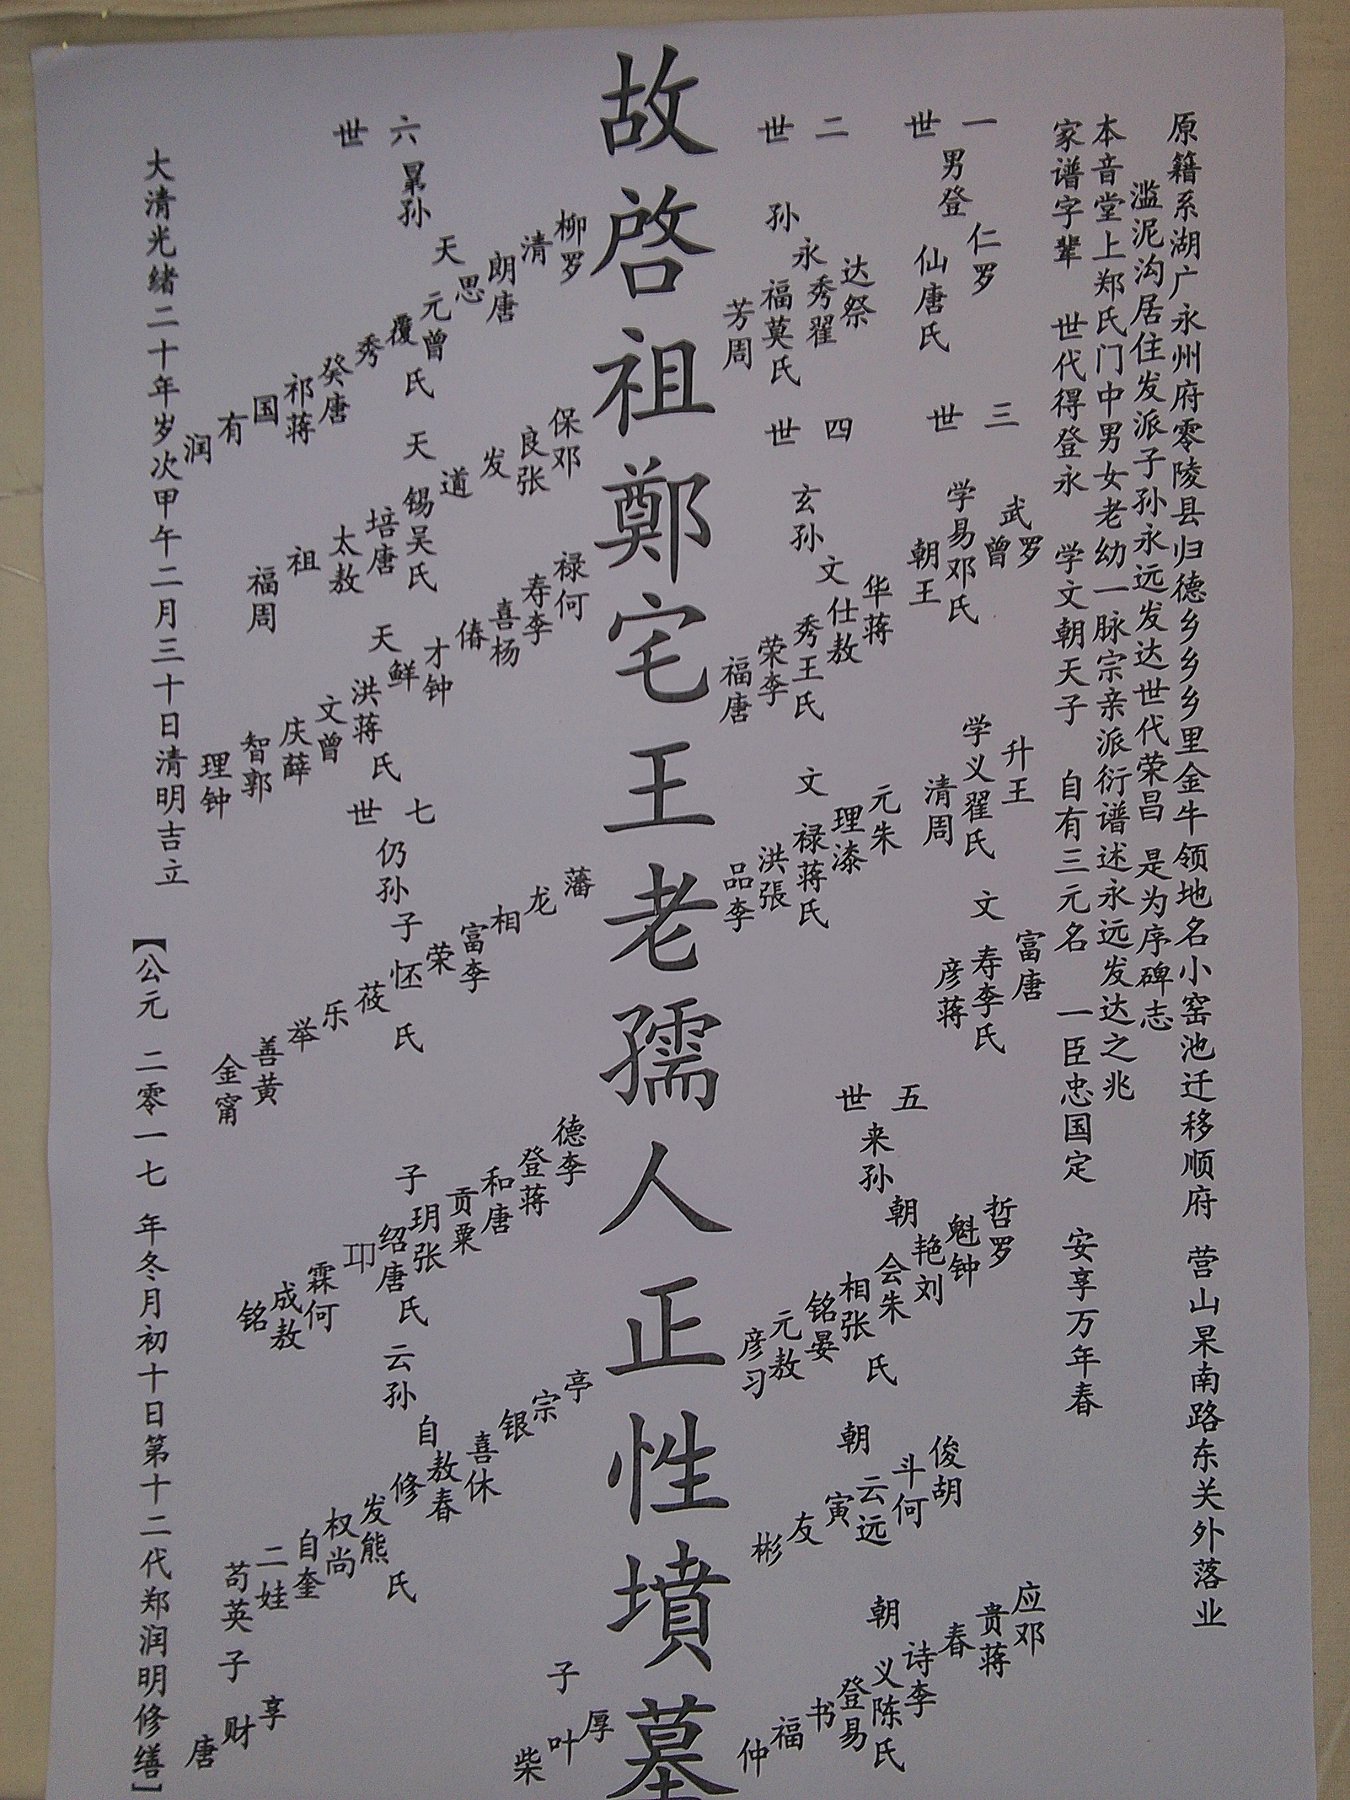 原籍系湖广永州府零陵县归德乡乡乡里金牛领地名小窑池迁移顺府 营山杲南路东关外落业
滥泥沟居住发派子孙永远发达世代荣昌 是为序碑志
本音堂上郑氏门中男女老幼一脉宗亲派衍谱述永远发达之兆
家谱字辈 世代得登永 学文朝天子 自有三元名 一臣忠国定 安享万年春
一世
男登
仁罗
仙唐氏
二世
孙
永
达祭
秀翟
福莫氏
芳周
三世
学易邓氏
武罗
曾
朝王
学义翟氏
升王
清周
文寿李氏
富唐
彦蒋
四世
玄孙
文仕敖
华蒋
秀王氏
荣李
福唐
文禄蒋氏
元朱
理漆
洪張
品李
五世
来孙
朝
哲罗
魁钟
艳刘
会朱
相张氏
铭晏
元敖
彦习
朝
俊胡
斗何
云远
寅
友
彬
朝
应邓
贵蒋
春
诗李
义陈氏
登易
书
福
仲
故啓祖鄭宅王老孺人正性墳墓
六世
晜孙
天
柳罗
清
朗唐
思
元曾氏
覆
秀
癸唐
祁蒋
国
有
润
天
保邓
良张
发
道
锡吴氏
培唐
太敖
祖
福周
天
禄何
寿李
喜杨
偆
才钟
鲜
洪蒋氏
文曾
庆薛
智郭
理钟
七世
仍孙
子
藩
龙
相
富李
荣
怌氏
莜
乐
举
善黄
金甯
子
德李
登蒋
和唐
贡粟
玥张氏
绍唐
霖何
成敖
铭
云孙
自
亭
宗
银
喜休
敖春
修
发熊氏
权尚
自奎
二娃
苟英
子
享
财
唐
子
厚
叶
柴
大清光绪二十年岁次甲午二月三十日清明吉立
【公元 二零一七 年冬月初十日第十二代郑润明修缮】